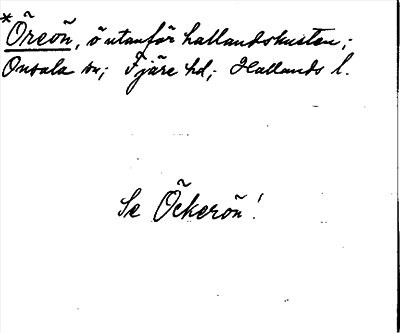 *Õreõn, õ utanför hallandskusten;
Onsala sn; Fjäre hd; Hallands l.
Se Õckerõn!